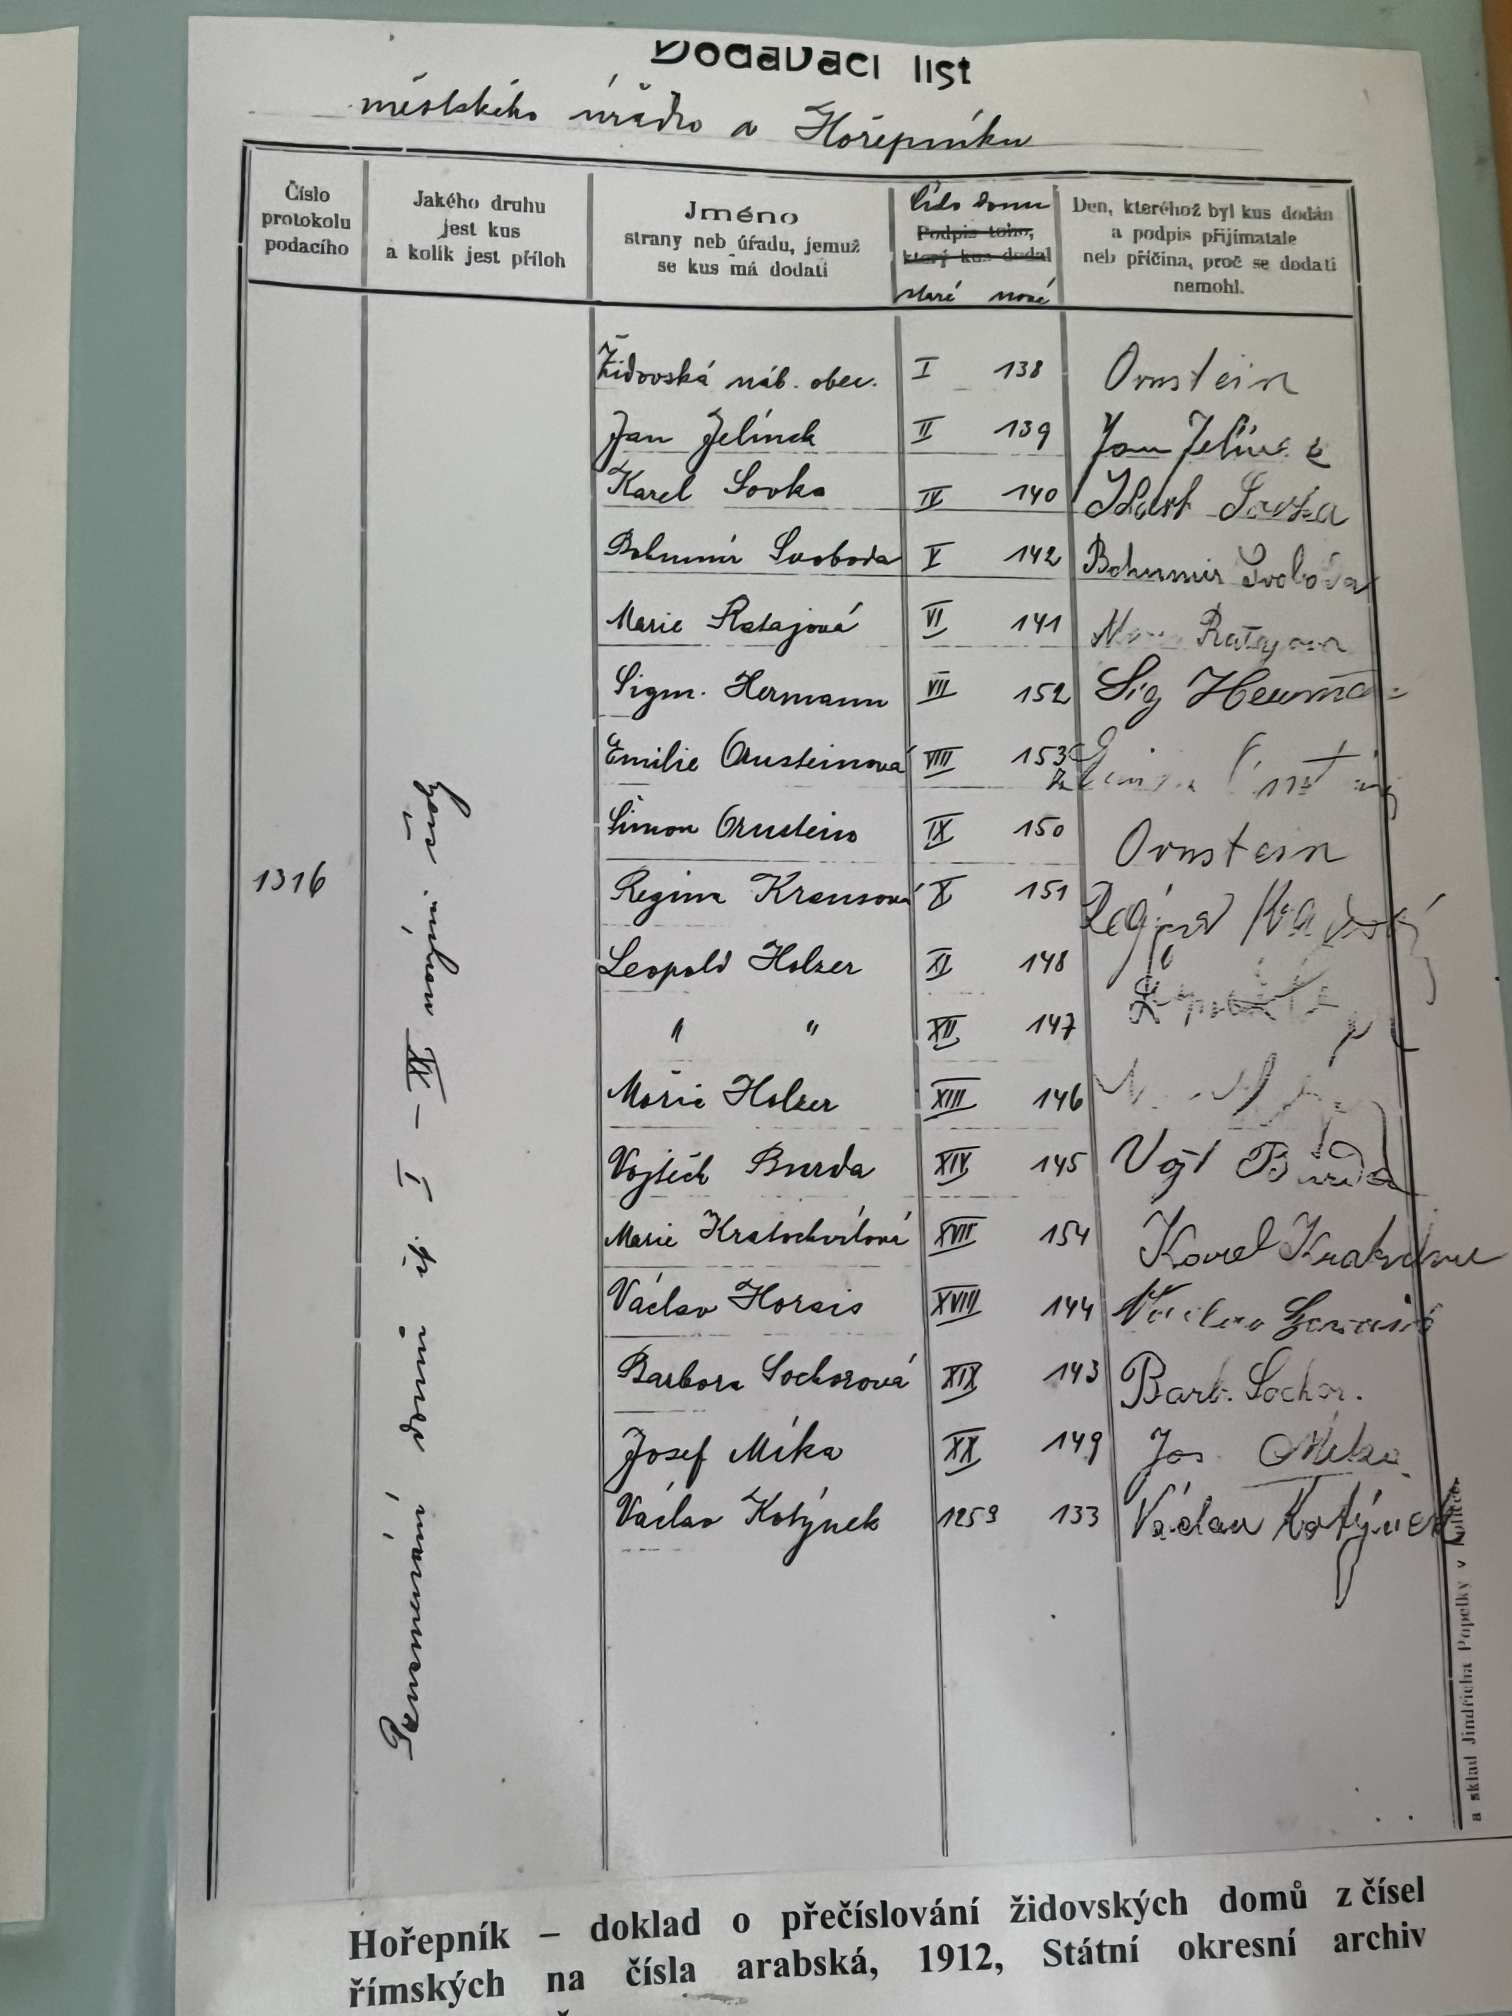 Dodávací list
městského úřadu v Hořepníku
Číslo
protokolu
podacího
Jakého druhu
jest kus
a kolik jest příloh
Jméno
strany neb úřadu, jemuž
se kus má dodati
Číslo domu
Podpis toho,
který kus dodal
staré nové
Den, kteréhož byl kus dodán
a podpis přijímatale
neb příčina, proč se dodati
nemohl.
1316
I - XX
Židovská náb. obec. I 138 Ornstein
Jan Jelínek II 139 Jan Jelínek
Karel Sovka IV 140 Sovka
Bohumír Svoboda V 142 Bohumír Svoboda
Marie Ratajová VI 141 Ratajova
Sigm. Hermann VII 152 Sig
Emilie Ornsteinová VIII 153
Šimon Ornstein IX 150 Ornstein
Regina Krausová X 151
Leopold Holzer XI 148
" " XII 147
Mořic Holzer XIII 146
Vojtěch Burda XIV 145 Vojt Burda
Marie Kratochvílová XVII 154 Karel
Václav Horais XVIII 144
Barbora Sochorová XIX 143 Barb. Sochor.
Josef Míka XX 149 Jos
Václav Kotýnek 125 133 Václav Kotýnek
a sklad Jindřicha Popelky v
Hořepník – doklad o přečíslování židovských domů z čísel
římských na čísla arabská, 1912, Státní okresní archiv